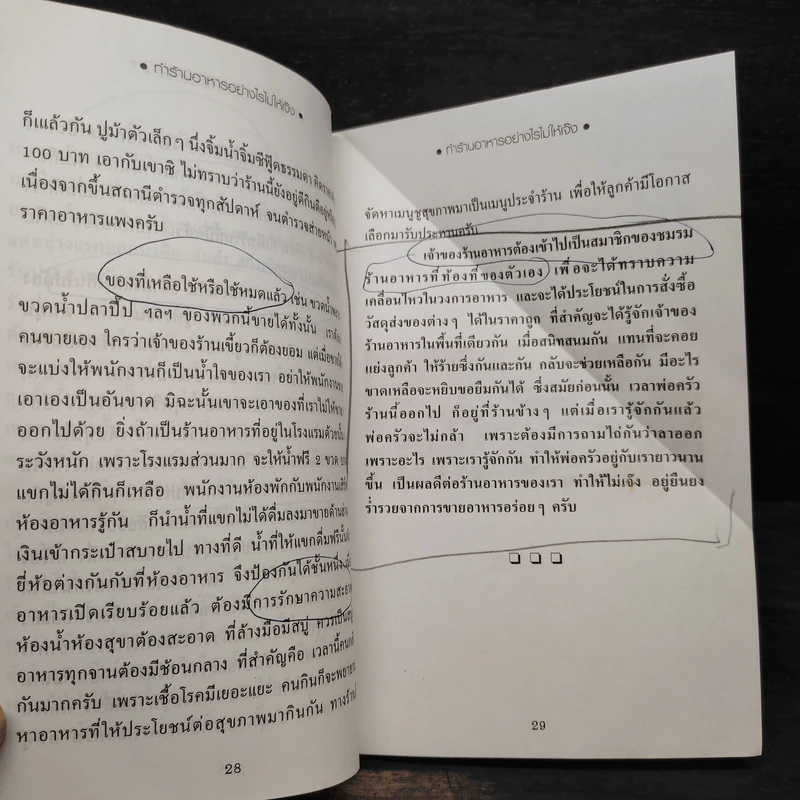 • ทำร้านอาหารอย่างไรไม่ให้เจ๊ง •
ก็แล้วกัน ปูม้าตัวเล็กๆ นึ่งจิ้มน้ำจิ้มซีฟู้ดธรรมดา
100 บาท เอากับเขาซิ ไม่ทราบว่าร้านนี้ยังอยู่ดีกินดีอยู่
เนื่องจากขึ้นสถานีตำรวจทุกสัปดาห์ จนตำรวจส่ายหน้า
ราคาอาหารแพงครับ
ของที่เหลือใช้หรือใช้หมดแล้ว เช่น ขวดน้ำ
ขวดน้ำปลาปี๊ป ฯลฯ ของพวกนี้ขายได้ทั้งนั้น
คนขายเอง ใครว่าเจ้าของร้านเขี้ยวก็ต้องยอม แต่เมื่อขาย
จะแบ่งให้พนักงานก็เป็นน้ำใจของเรา อย่าให้พนักงาน
เอาเองเป็นอันขาด มิฉะนั้นเขาจะเอาของที่เราไม่ให้
ออกไปด้วย ยิ่งถ้าเป็นร้านอาหารที่อยู่ในโรงแรมด้วย
ระวังหนัก เพราะโรงแรมส่วนมาก จะให้น้ำฟรี 2 ขวด
แขกไม่ได้กินก็เหลือ พนักงานห้องพักกับพนักงาน
ห้องอาหารรู้กัน ก็นำน้ำที่แขกไม่ได้ดื่มลงมาขายด้าน
เงินเข้ากระเป๋าสบายไป ทางที่ดี น้ำที่ให้แขกดื่มฟรีนั้น
ยี่ห้อต่างกันกับที่ห้องอาหาร จึงป้องกันได้ชั้นหนึ่ง
อาหารเปิดเรียบร้อยแล้ว ต้องมีการรักษาความสะอาด
ห้องน้ำห้องสุขาต้องสะอาด ที่ล้างมือมีสบู่ ควรเป็น
อาหารทุกจานต้องมีช้อนกลาง ที่สำคัญคือ เวลานี้คน
กันมากครับ เพราะเชื้อโรคมีเยอะแยะ คนกินก็จะพยายาม
หาอาหารที่ให้ประโยชน์ต่อสุขภาพมากินกัน ทางร้าน
28
• ทำร้านอาหารอย่างไรไม่ให้เจ๊ง •
จัดหาเมนูชูสุขภาพมาเป็นเมนูประจำร้าน เพื่อให้ลูกค้ามีโอกาส
เลือกมารับประทานครับ
เจ้าของร้านอาหารต้องเข้าไปเป็นสมาชิกของชมรม
ร้านอาหารที่ท้องที่ของตัวเอง เพื่อจะได้ทราบความ
เคลื่อนไหวในวงการอาหาร และจะได้ประโยชน์ในการสั่งซื้อ
วัสดุส่งของต่างๆ ได้ในราคาถูก ที่สำคัญจะได้รู้จักเจ้าของ
ร้านอาหารในพื้นที่เดียวกัน เมื่อสนิทสนมกัน แทนที่จะคอย
แย่งลูกค้า ให้ร้ายซึ่งกันและกัน กลับจะช่วยเหลือกัน มีอะไร
ขาดเหลือจะหยิบขอยืมกันได้ ซึ่งสมัยก่อนนั้น เวลาพ่อครัว
ร้านนี้ออกไป ก็อยู่ที่ร้านข้างๆ แต่เมื่อเรารู้จักกันแล้ว
พ่อครัวจะไม่กล้า เพราะต้องมีการถามไถ่กันว่าลาออก
เพราะอะไร เพราะเรารู้จักกัน ทำให้พ่อครัวอยู่กับเรายาวนาน
ขึ้น เป็นผลดีต่อร้านอาหารของเรา ทำให้ไม่เจ๊ง อยู่ยืนยง
ร่ำรวยจากการขายอาหารอร่อยๆ ครับ
29